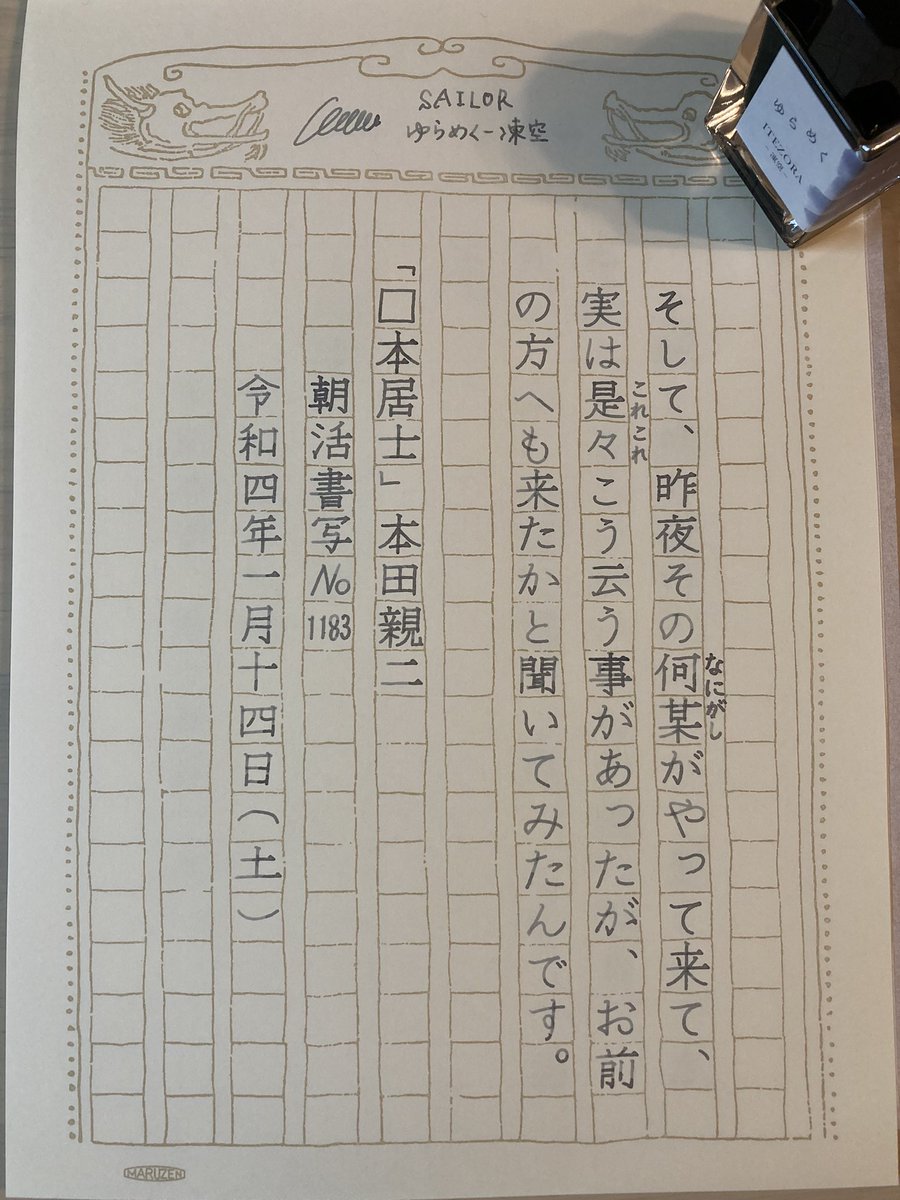 SAILOR
ゆらめくー凍空
ゆらめく
ITEZORA
-凍空-
そして、昨夜その何某がやって来て、
なにがし
実は是々こう云う事があったが、お前
これこれ
の方へも来たかと聞いてみたんです。
「□本居士」本田親二
朝活書写No1183
令和四年一月十四日(土)
MARUZEN